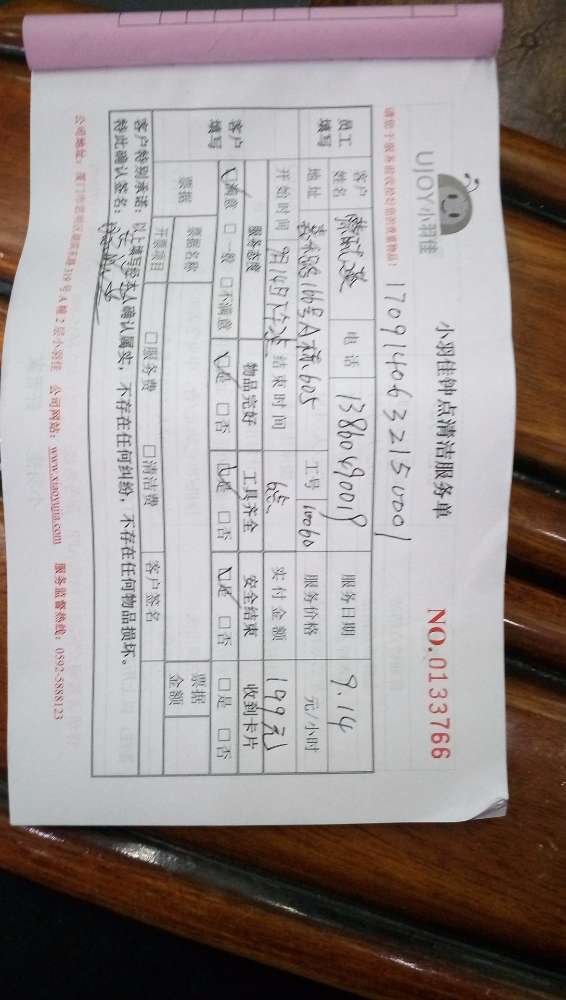 UJOY小羽佳
小羽佳钟点清洁服务单
NO.0133766
请您于服务前收检好您的贵重物品!
1709140632150001
员工填写
客户姓名 电话 13860690019 服务日期 9.14
地址 166号A栋605 工号 10060 服务价格 元/小时
开始时间 结束时间 6点 实付金额 199元
客户填写
服务态度 物品完好 工具齐全 安全结束 收到卡片
☑满意 □一般 □不满意 ☑是 □否 ☑是 □否 ☑是 □否 □是 □否
票据 票据名称 票据金额
开票项目 □服务费 □清洁费 客户签名
客户特别承诺:以上填写经本人确认属实,不存在任何纠纷,不存在任何物品损坏。
特此确认签名:
公司地址:厦门市思明区湖滨东路319号A幢2层小羽佳 公司网站:www.xiaoyujia.com 服务监督热线:0592-5888123